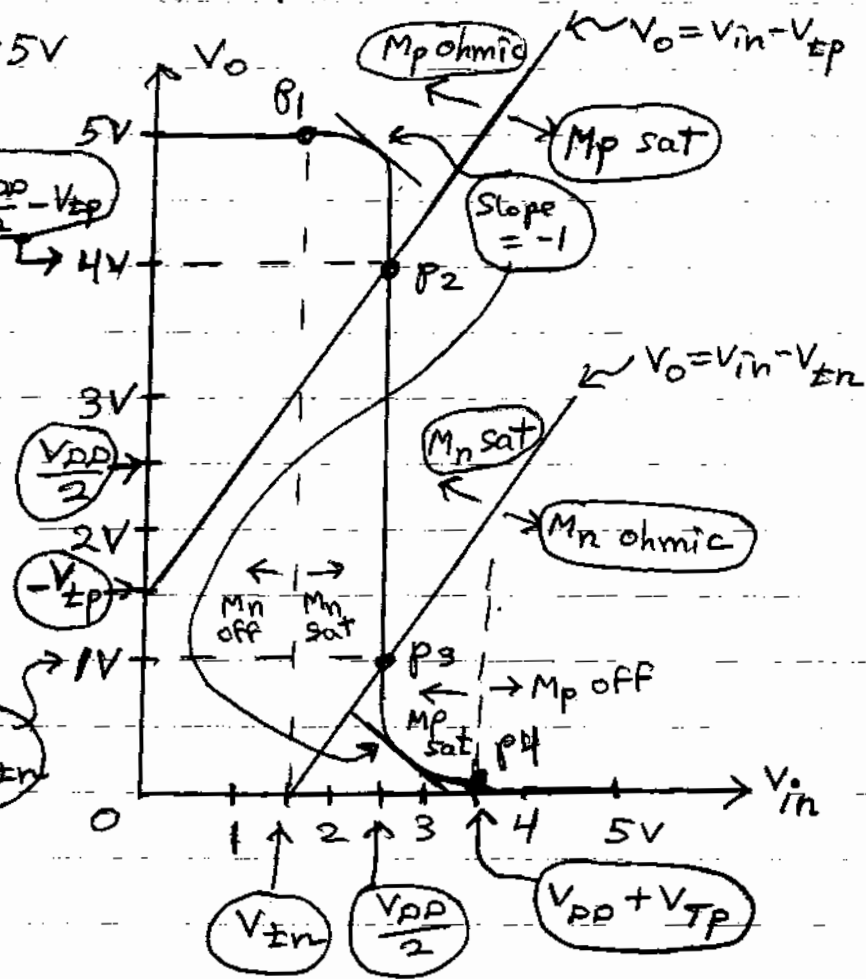 5V
V₀
Mp ohmic
V₀ = Vin - Vtp
P1
5V
Mp sat
- Vtp
Slope
= -1
4V
P2
V₀ = Vin - Vtn
3V
Mn sat
VDD
2
Mn ohmic
2V
-Vtp
Mn off
Mn sat
1V
P3
Mp off
Mp sat
P4
Vin
0
1
2
3
4
5V
Vtn
VDD
2
VDD + VTp